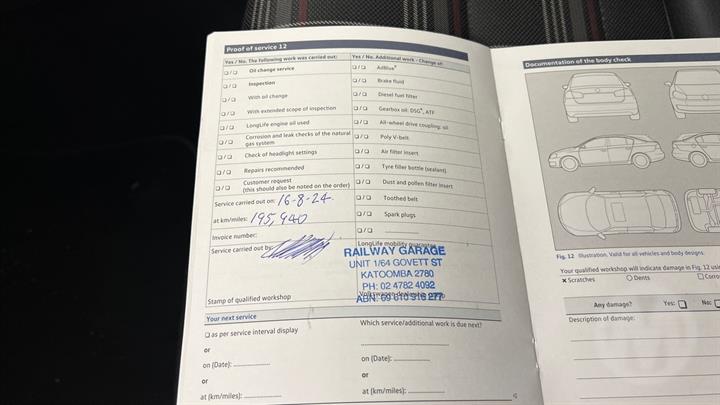 Proof of service 12
Yes / No. The following work was carried out:
❑ / ❑ Oil change service
❑ / ❑ Inspection
❑ / ❑ With oil change
❑ / ❑ With extended scope of inspection
❑ / ❑ LongLife engine oil used
❑ / ❑ Corrosion and leak checks of the natural
gas system
❑ / ❑ Check of headlight settings
❑ / ❑ Repairs recommended
❑ / ❑ Customer request
(this should also be noted on the order)
Service carried out on: 16-8-24
at km/miles: 195,940
Invoice number:
Service carried out by:
Stamp of qualified workshop
Yes / No. Additional work - Change of:
❑ / ❑ AdBlue®
❑ / ❑ Brake fluid
❑ / ❑ Diesel fuel filter
❑ / ❑ Gearbox oil: DSG®, ATF
❑ / ❑ All-wheel drive coupling: oil
❑ / ❑ Poly V-belt
❑ / ❑ Air filter insert
❑ / ❑ Tyre filler bottle (sealant)
❑ / ❑ Dust and pollen filter insert
❑ / ❑ Toothed belt
❑ / ❑ Spark plugs
❑ / ❑
LongLife mobility guarantee
RAILWAY GARAGE
UNIT 1/64 GOVETT ST
KATOOMBA 2780
PH: 02 4782 4092
Your next service
❑ as per service interval display
or
on (Date):
or
at (km/miles):
Which service/additional work is due next?
on (Date):
or
at (km/miles):
Documentation of the body check
Fig. 12 Illustration. Valid for all vehicles and body designs.
Your qualified workshop will indicate damage in Fig. 12
× Scratches O Dents
Any damage? Yes: ❑ No:
Description of damage: